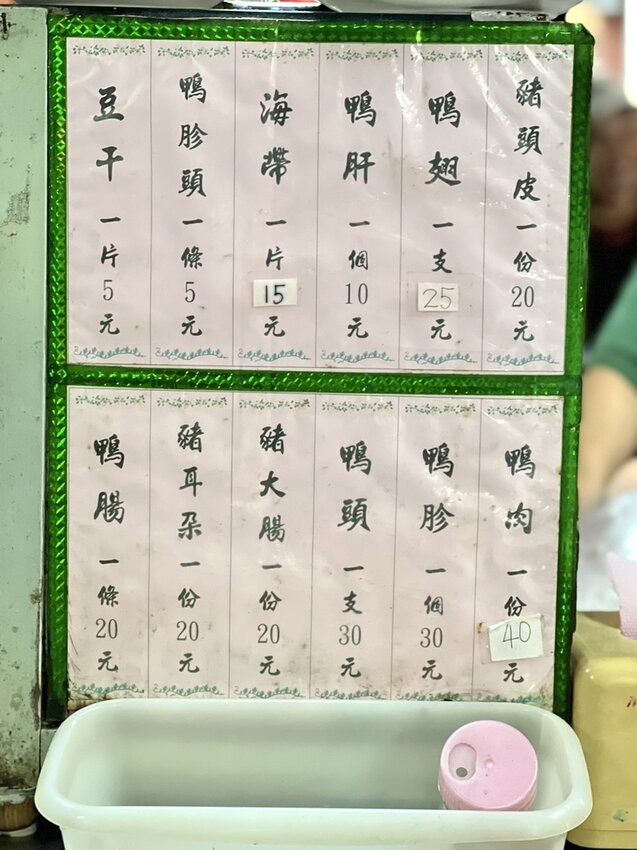 豬頭皮一份20元
鴨翅一支25元
鴨肝一個10元
海帶一片15元
鴨胗頭一條5元
豆干一片5元
鴨肉一份40元
鴨胗一個30元
鴨頭一支30元
豬大腸一份20元
豬耳朵一份20元
鴨腸一條20元